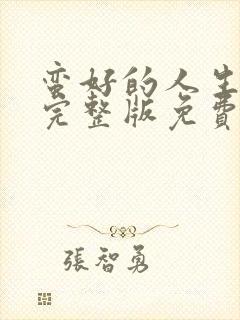 蛮好的人生
完整版免費
張智勇